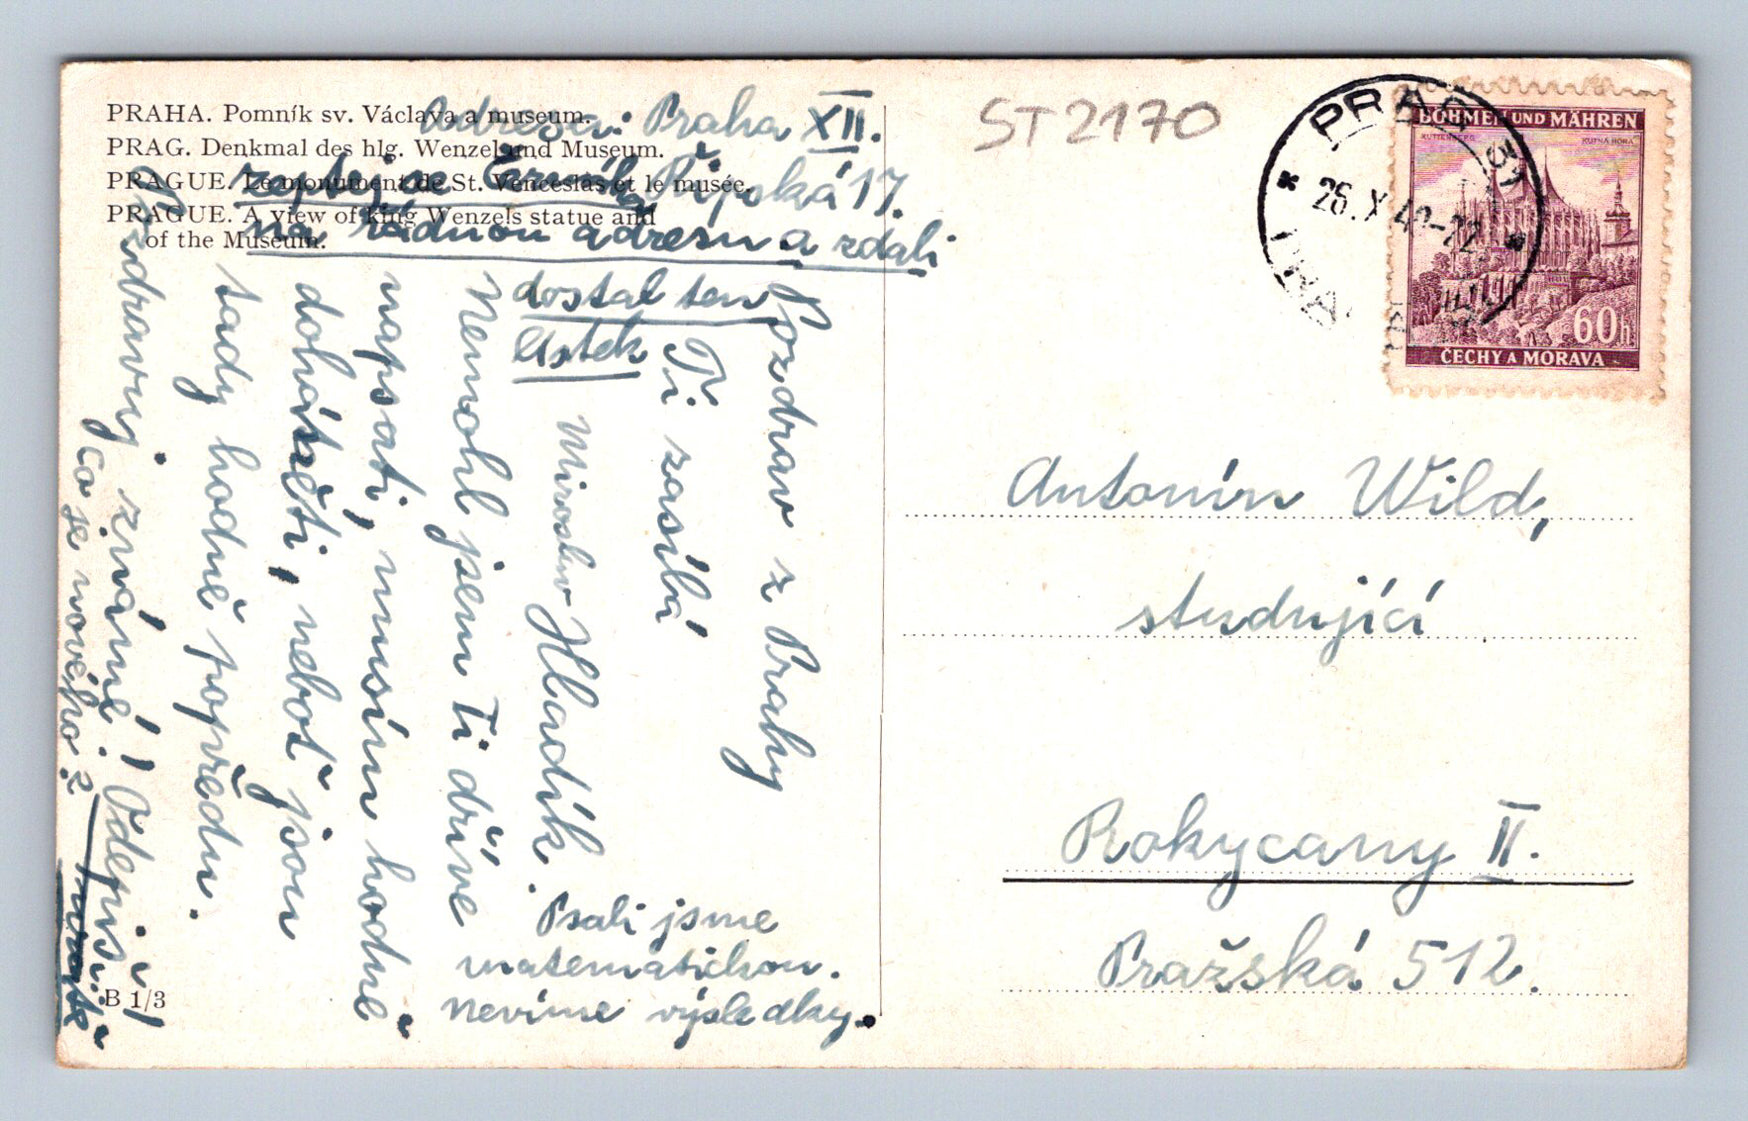 PRAHA. Pomník sv. Václava a museum.
PRAG. Denkmal des hlg. Wenzel und Museum.
PRAGUE. Le monument de St. Venceslas et le musée.
PRAGUE. A view of king Wenzels statue and
of the Museum.
adresa: Praha XII.
Řipská 17.
zeptej se Čermáka
na řádnou adresu a zdali
dostal ten
lístek
Pozdrav z Prahy
Ti zasílá
Miroslav Hladík.
Nemohl jsem Ti dříve
napsati, musím hodně
doháněti, neboť jsou
tady hodně popředu.
Pozdravuj známé! Odepiš!
Co je nového?
Psali jsme
matematickou.
nevíme výsledky.
B 1/3
ST2170
PRAG 31
26.X 42-22
BÖHMEN UND MÄHREN
KUTTENBERG KUTNÁ HORA
60h
ČECHY A MORAVA
Antonín Wild,
studující
Rokycany II.
Pražská 512.